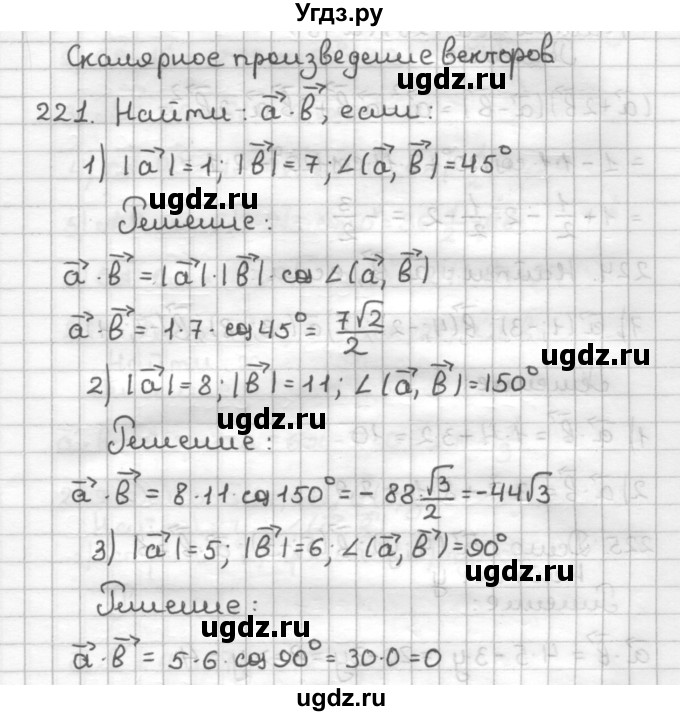 Угдз.ру
Скалярное произведение векторов
ugdz.ru
221. Найти: a⃗·b⃗, если:
1) |a⃗|=1; |b⃗|=7; ∠(a⃗, b⃗)=45°
ugdz.ru
Решение:
a⃗·b⃗ = |a⃗|·|b⃗|·cos∠(a⃗, b⃗)
a⃗·b⃗ = 1·7·cos45° = 7√2/2
ugdz.ru
2) |a⃗|=8; |b⃗|=11; ∠(a⃗, b⃗)=150°
ugdz.ru
Решение:
a⃗·b⃗ = 8·11·cos150° = -88·√3/2 = -44√3
3) |a⃗|=5; |b⃗|=6; ∠(a⃗, b⃗)=90°
ugdz.ru
Решение:
ugdz.ru
a⃗·b⃗ = 5·6·cos90° = 30·0=0
ugdz.ru